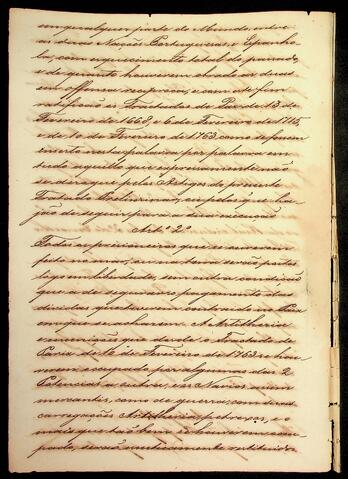 em qualquer parte do Mundo entre
as duas Nações Portugueza, e Espanho-
la, com esquecimento total do passado,
e de quanto houverem obrado as duas
em offensa reciproca; e com este fim
ratificão os Tratados de Paz de 13 de
Fevereiro de 1668, e 6 de Fevereiro de 1715,
e de 10 de Fevereiro de 1763, como se fossem
insertos n'este palavra por palavra em
tudo aquillo que expressamente não
se derogue pelos Artigos do presente
Tratado Preliminar, ou pelos que ha-
jão de seguir para a sua execução
Art.º 2.º
Todos os prisioneiros que se houverem
feito no mar, ou na terra serão postos
logo em liberdade, sem outra condição
que a de segurar o pagamento das
dividas que houverem contraido no Paiz
em que se acharem. A Artilheria
e munições que desde o Tractado de
Pariz de 10 de Fevereiro de 1763 se hou-
verem occupado por algumas das 2
Potencias a outra, e os Navios assim
mercantes, como de guerra, com suas
carregações, Artilheria, petrexos, e o
mais que tão bem se houverem occu-
pado, serão mutuamente restituidos